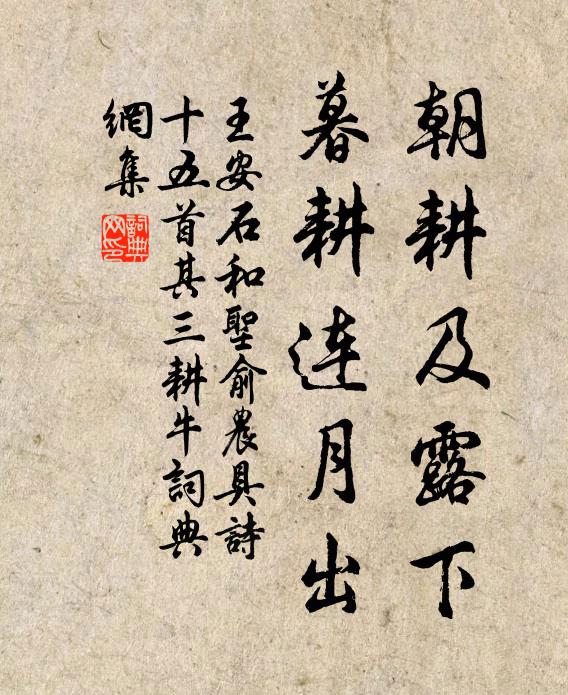 朝耕及露下
暮耕连月出
王安石和聖俞農具詩
十五首其三耕牛詞典
網集
詞典
网印